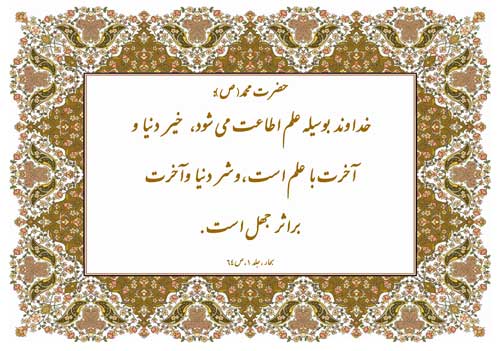 حضرت محمد (ص):
خداوند بوسیله علم اطاعت می شود، خیر دنیا و
آخرت با علم است، و شر دنیا و آخرت
براثر جهل است.
بحار، جلد ۱، ص ۶۴